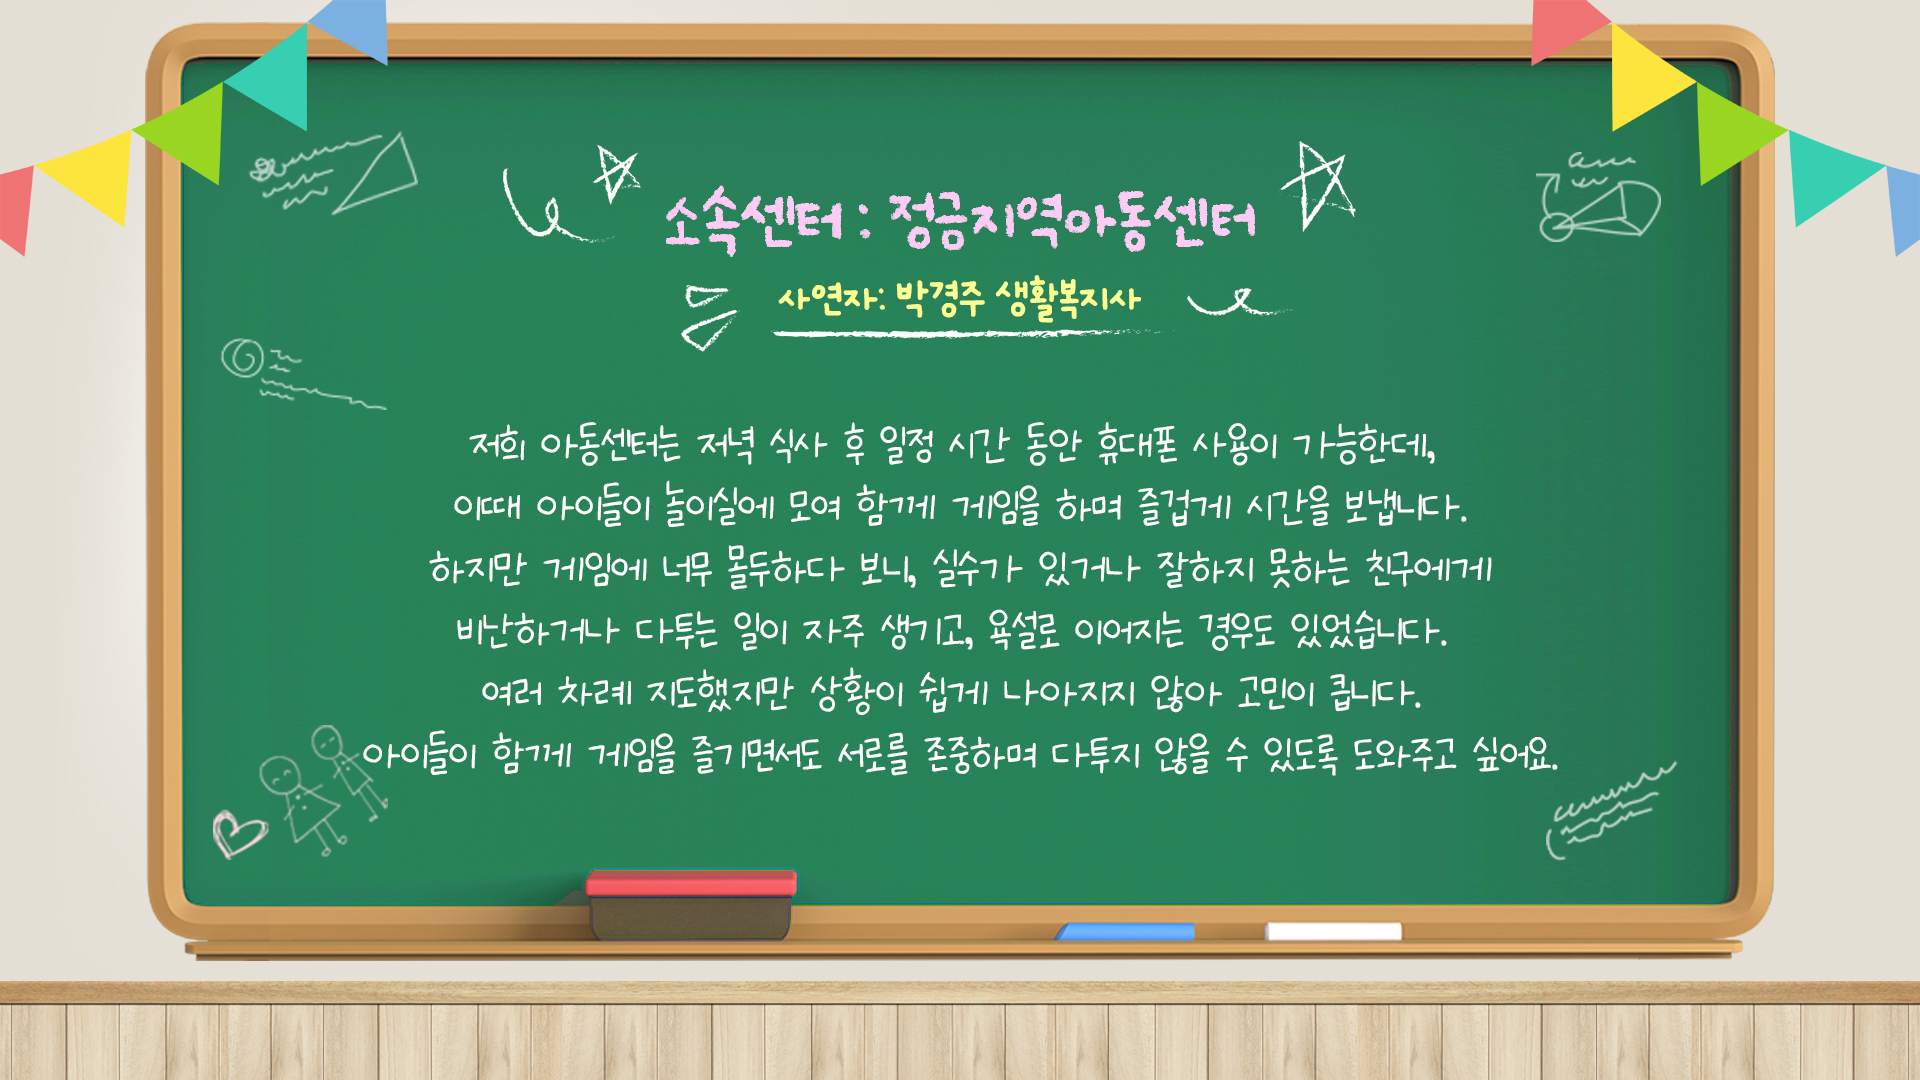 소속센터 : 정금지역아동센터
사연자: 박경주 생활복지사
저희 아동센터는 저녁 식사 후 일정 시간 동안 휴대폰 사용이 가능한데,
이때 아이들이 놀이실에 모여 함께 게임을 하며 즐겁게 시간을 보냅니다.
하지만 게임에 너무 몰두하다 보니, 실수가 있거나 잘하지 못하는 친구에게
비난하거나 다투는 일이 자주 생기고, 욕설로 이어지는 경우도 있었습니다.
여러 차례 지도했지만 상황이 쉽게 나아지지 않아 고민이 큽니다.
아이들이 함께 게임을 즐기면서도 서로를 존중하며 다투지 않을 수 있도록 도와주고 싶어요.